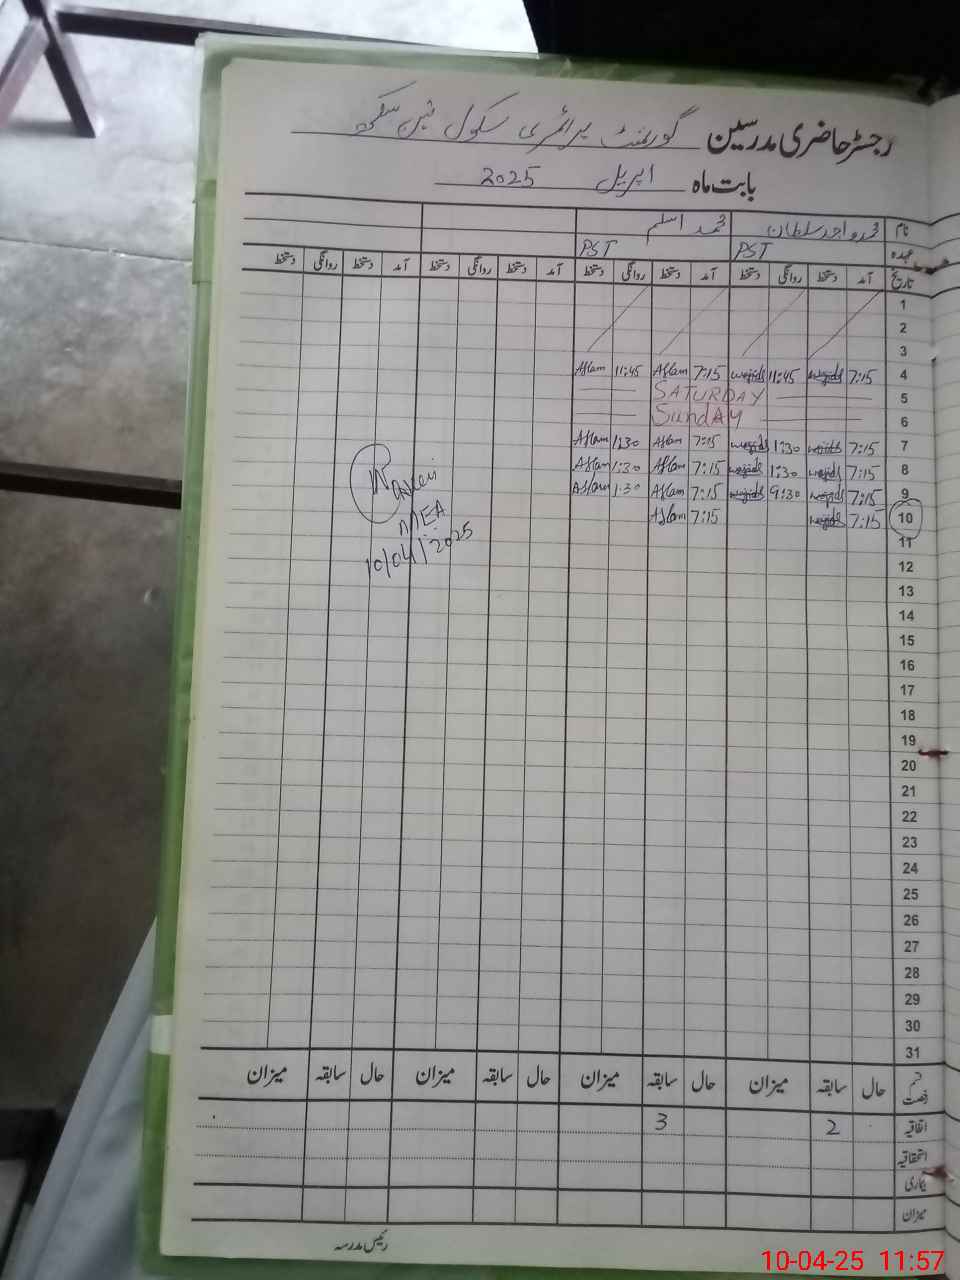 رجسٹر حاضری مدرسین گورنمنٹ پرائمری سکول
بابت ماہ اپریل 2025
نام محمد واجد سلطان محمد اسلم
عہدہ PST PST
تاریخ آمد دستخط روانگی دستخط آمد دستخط روانگی دستخط آمد دستخط روانگی دستخط آمد دستخط روانگی دستخط
1
2
3
4 7:15 wajids 11:45 wajids 7:15 Aslam 11:45 Aslam
5 SATURDAY
6 SundAY
7 7:15 wajids 1:30 wajids 7:15 Aslam 1:30 Aslam
8 7:15 wajids 1:30 wajids 7:15 Aslam 1:30 Aslam
9 7:15 wajids 9:30 wajids 7:15 Aslam 1:30 Aslam
10 7:15 wajids 7:15 Aslam
MEA
10/04/2025
11
12
13
14
15
16
17
18
19
20
21
22
23
24
25
26
27
28
29
30
31
قسم رخصت حال سابقہ میزان حال سابقہ میزان حال سابقہ میزان حال سابقہ میزان
اتفاقیہ 2 3
استحقاقیہ
بیماری
میزان
رئیس مدرسہ
10-04-25 11:57